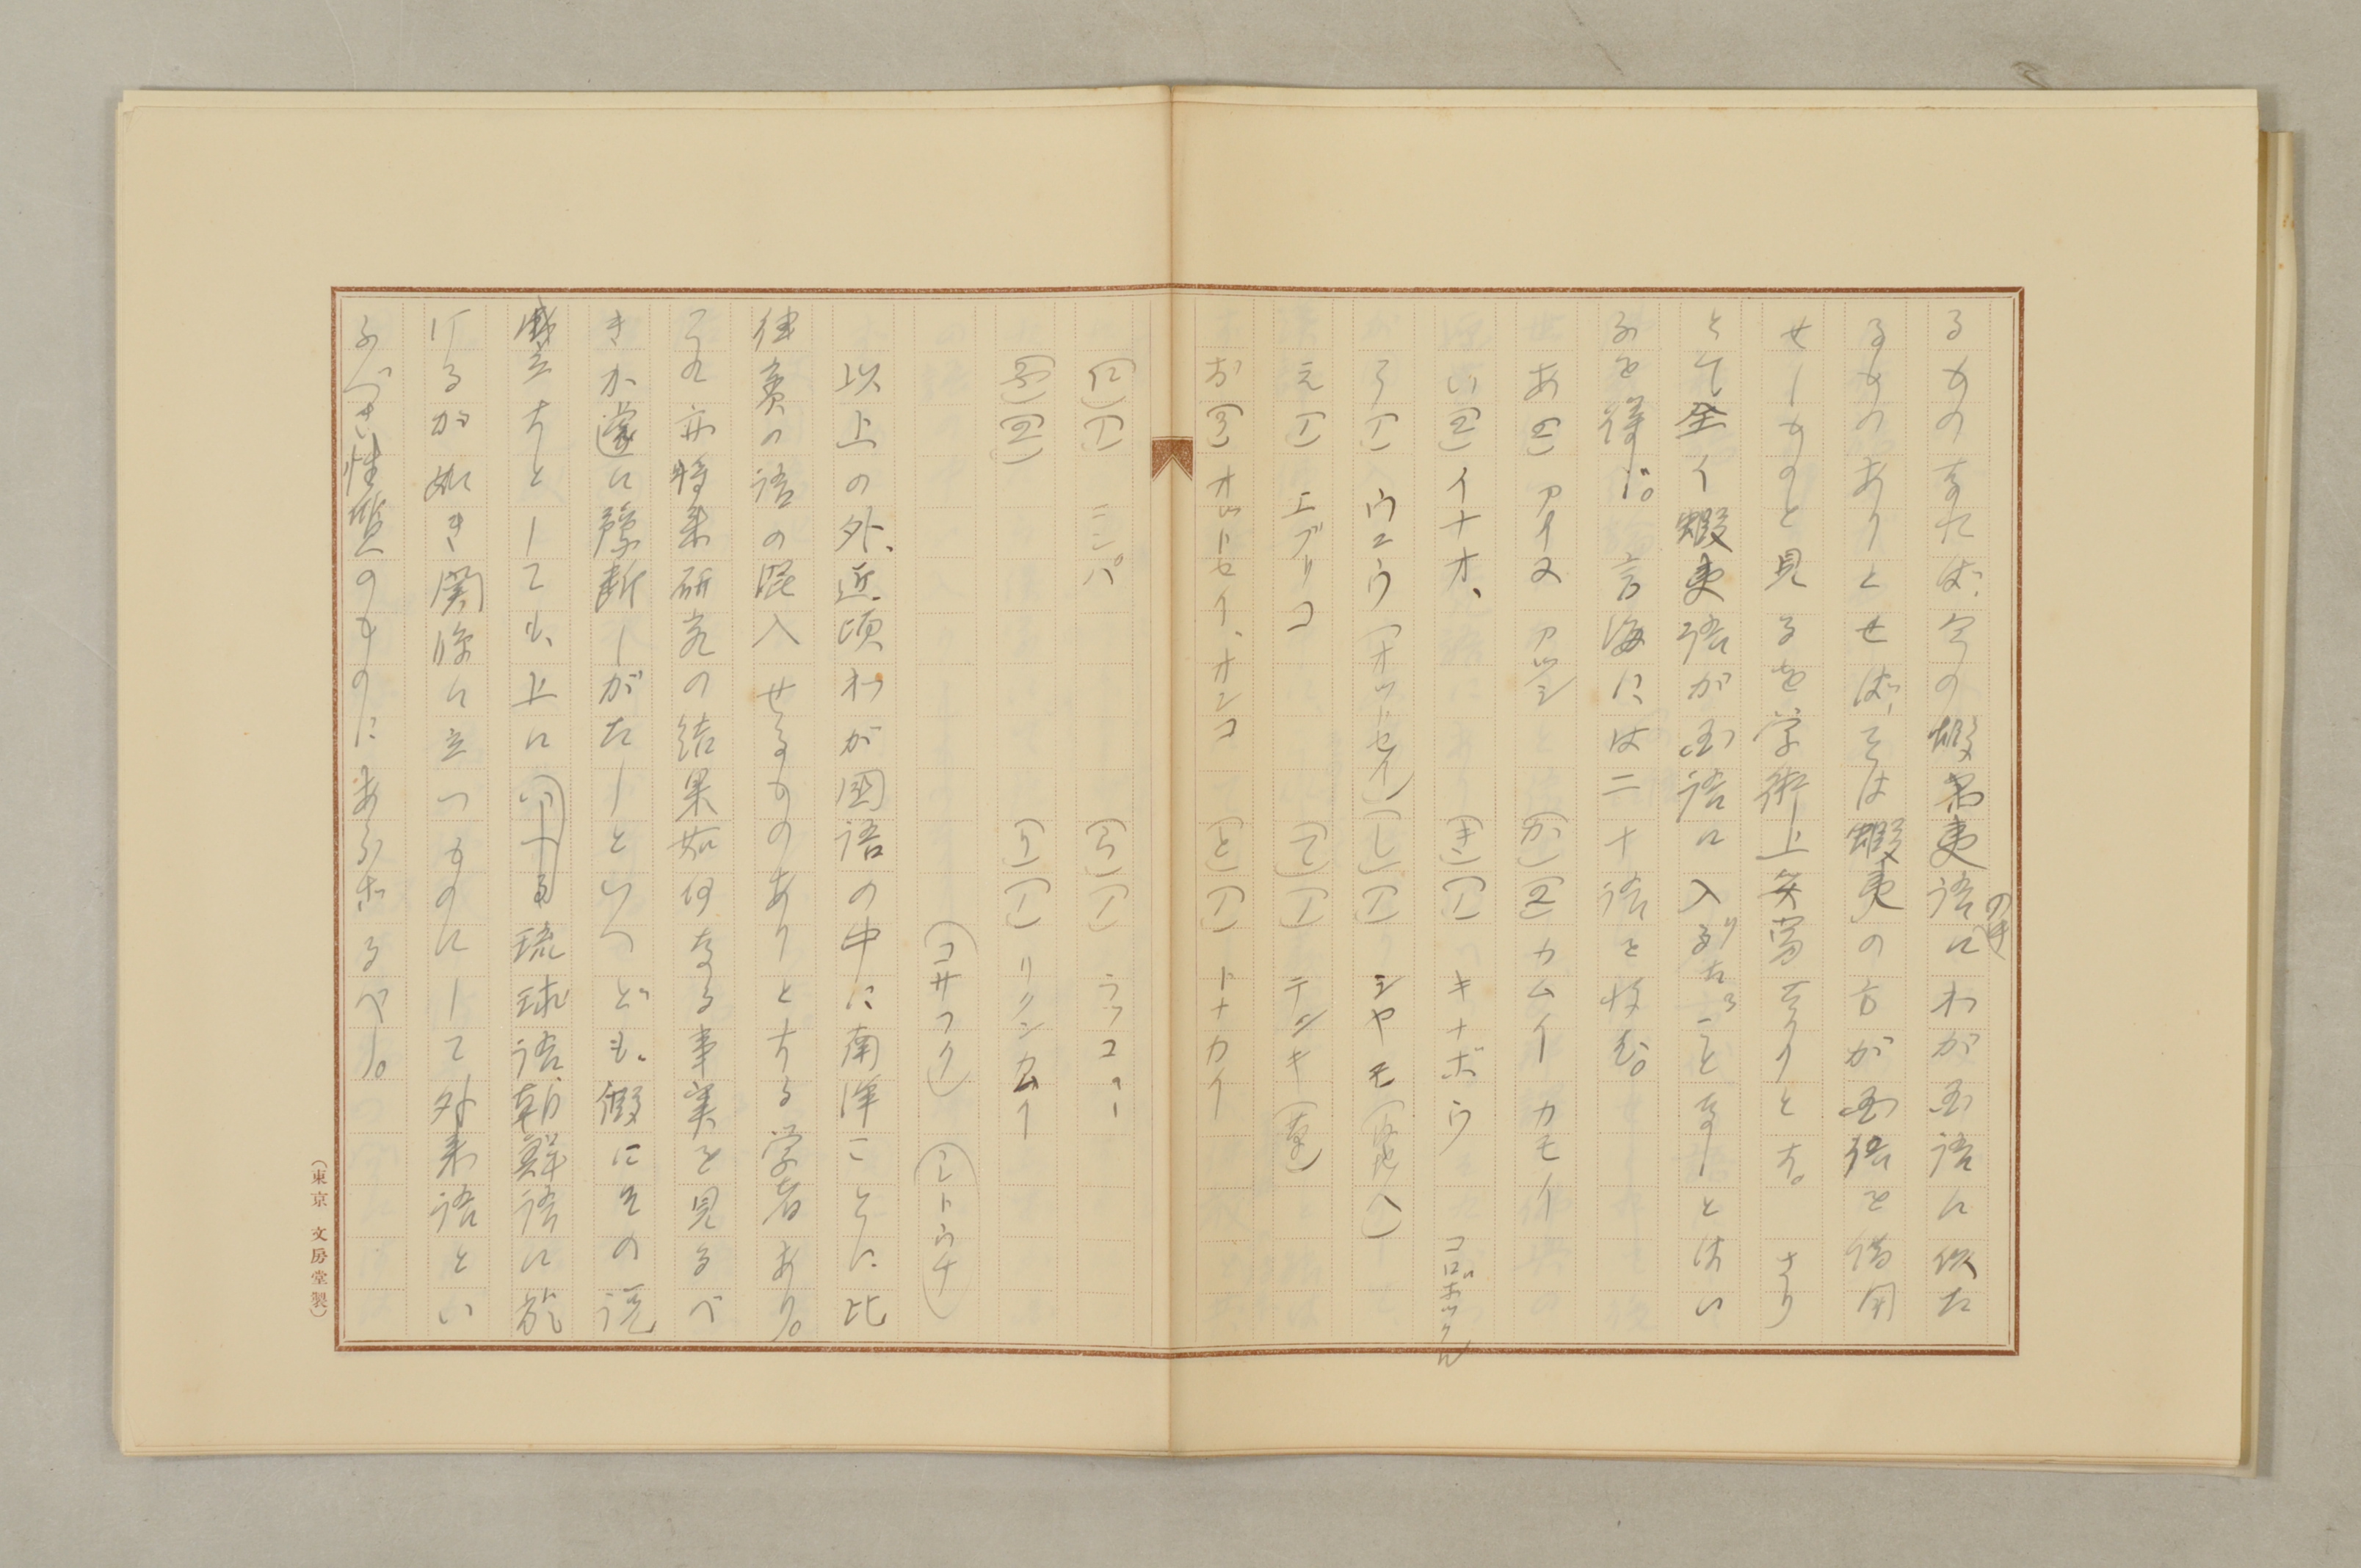 るものすれば、今の蝦夷語のきにわが国語に似た
るものありとせば、そは蝦夷の方が国語を借用
せしものと見るを学術上至当なりとす。さり
とて全く蝦夷語が国語に入りたることなしとはい
ふを得ず。言海には二十語を收む。
あ(2) アイヌ アツシ (か)(2) カムイ カモイ
い(2) イナオ、 (き)(1) キナボウ コロボックル
う(1) ウニウ(オットセイ) (し)(1) シヤモ(内地人)
え(1) エブリコ (て)(1) テンキ(草)
お(3) オットセイ、オンコ (と)(1) トナカイ
(に)(1) ニシパ (ら)(1) ラッコ
(ふ)(2) (り)(1) リクンカムイ
(コサフク) (シトウチ)
以上の外、近頃わが国語の中に南洋ことに比
律賓の語の混入せるものありとする学者あり。
これ亦将来研究の結果如何なる事実を見るべ
きか遽に豫断しがたしといへども、假にその説
成立すとしても、上にいへる琉球語朝鮮語に於
けるが如き関係に立つものにして外来語とい
ふべき性質のものにあらざるべし。
(東京 文房堂製)